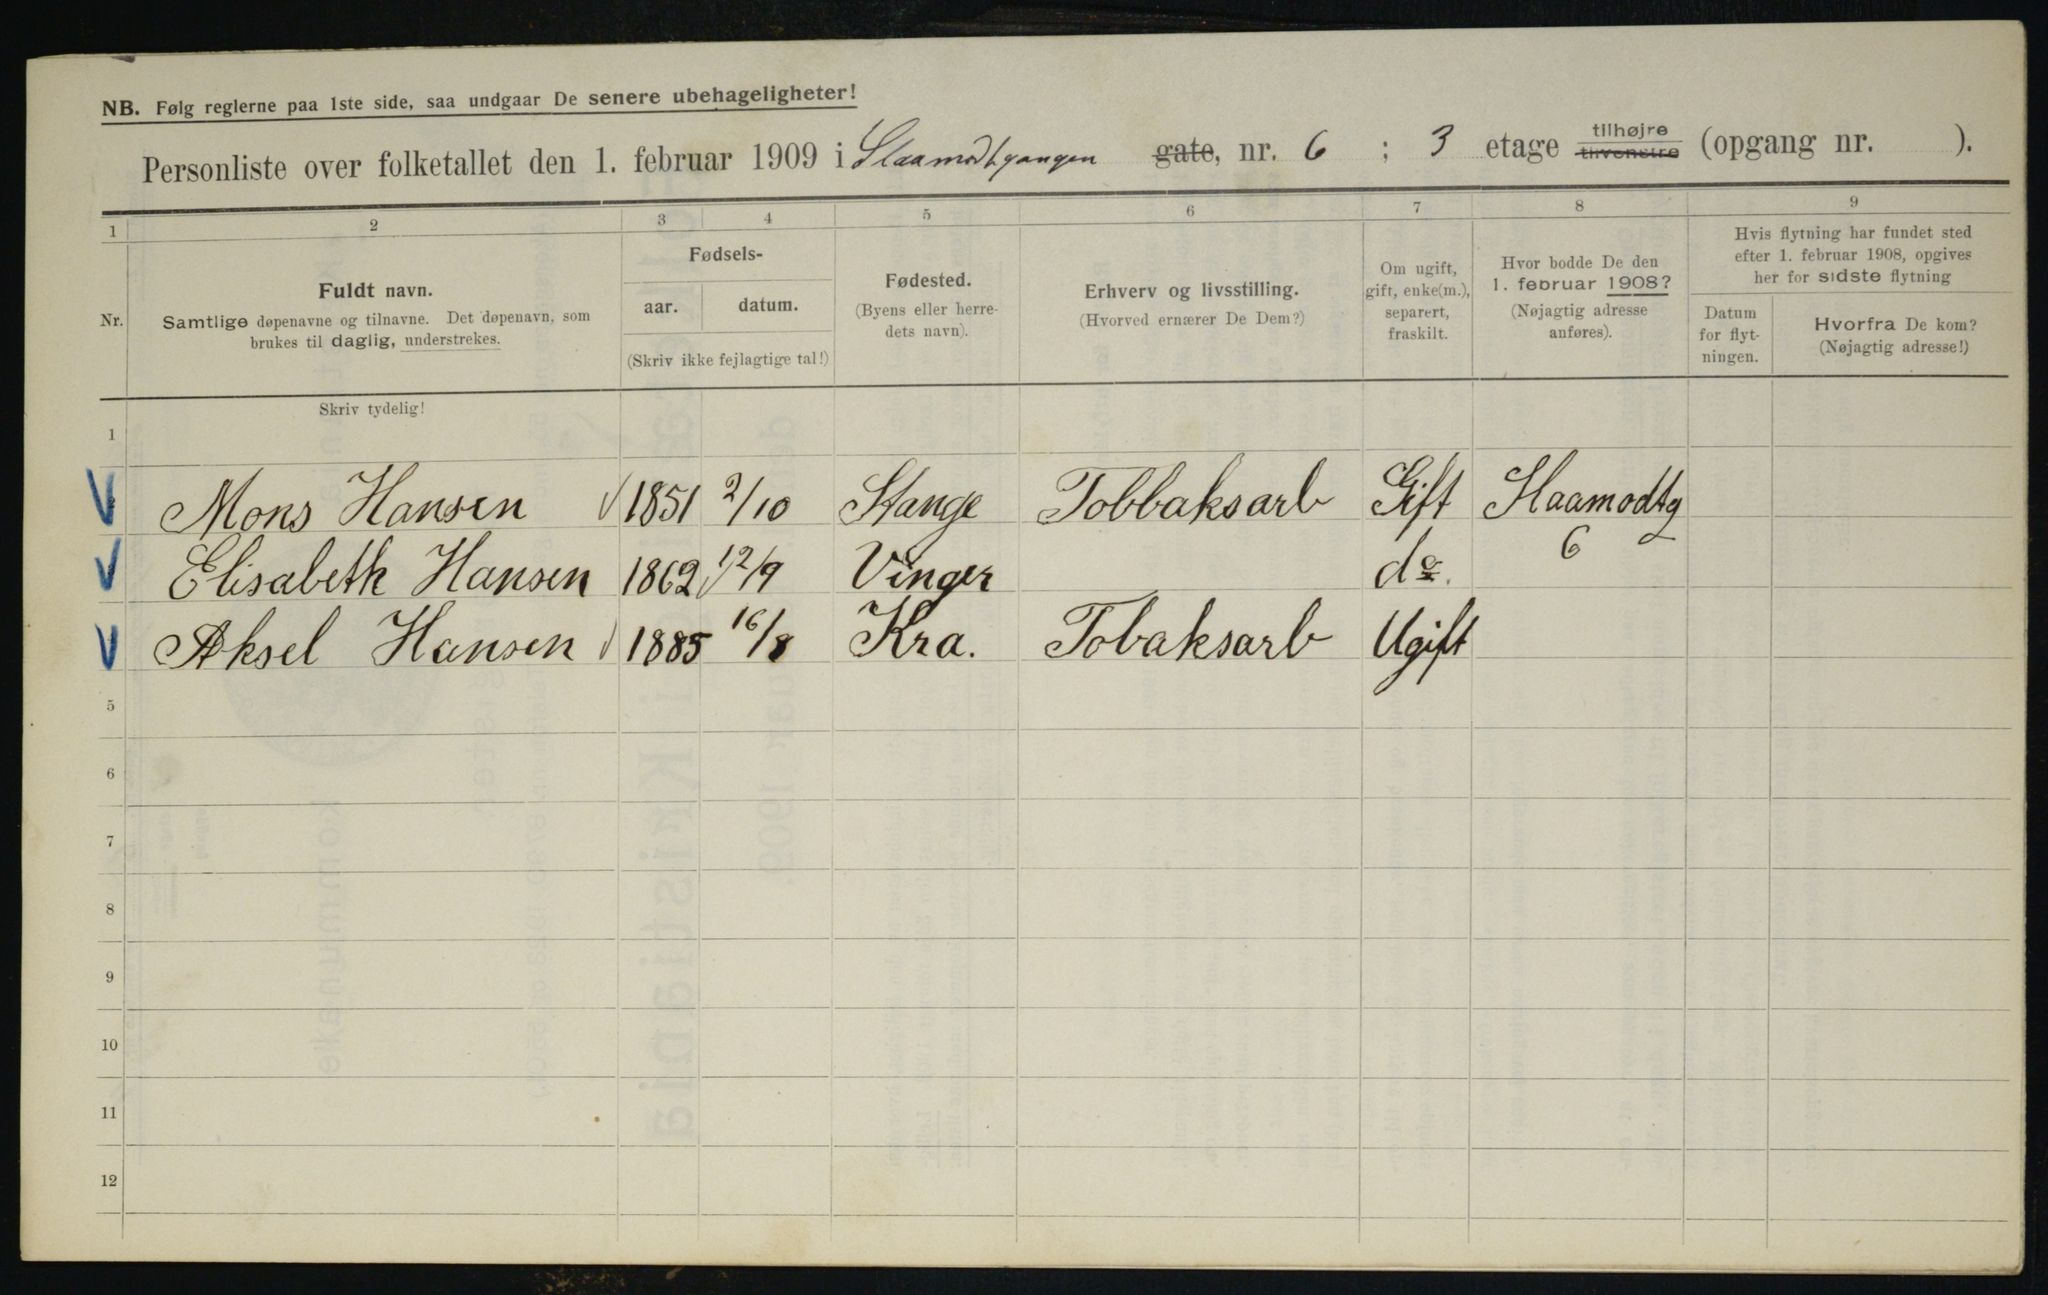 NB. Følg reglerne paa 1ste side, saa undgaar De senere ubehageligheter!
Personliste over folketallet den 1. februar 1909 i Slaamodtgangen gate, nr. 6 ; 3 etage tilhøjre tilvenstre (opgang nr. ).
1 2 3 4 5 6 7 8 9
Nr.
Fuldt navn.
Samtlige døpenavne og tilnavne. Det døpenavn, som
brukes til daglig, understrekes.
Fødsels-
aar. datum.
(Skriv ikke fejlagtige tal!)
Fødested.
(Byens eller herre-
dets navn).
Erhverv og livsstilling.
(Hvorved ernærer De Dem?)
Om ugift,
gift, enke(m.),
separert,
fraskilt.
Hvor bodde De den
1. februar 1908?
(Nøjagtig adresse
anføres).
Hvis flytning har fundet sted
efter 1. februar 1908, opgives
her for sidste flytning
Datum
for flyt-
ningen.
Hvorfra De kom?
(Nøjagtig adresse!)
Skriv tydelig!
1
Mons Hansen 1851 2/10 Stange Tobbaksarb Gift Slaamodtg
6
Elisabeth Hansen 1862 12/9 Vinger do.
Aksel Hansen 1885 16/8 Kra. Tobaksarb Ugift
5
6
7
8
9
10
11
12